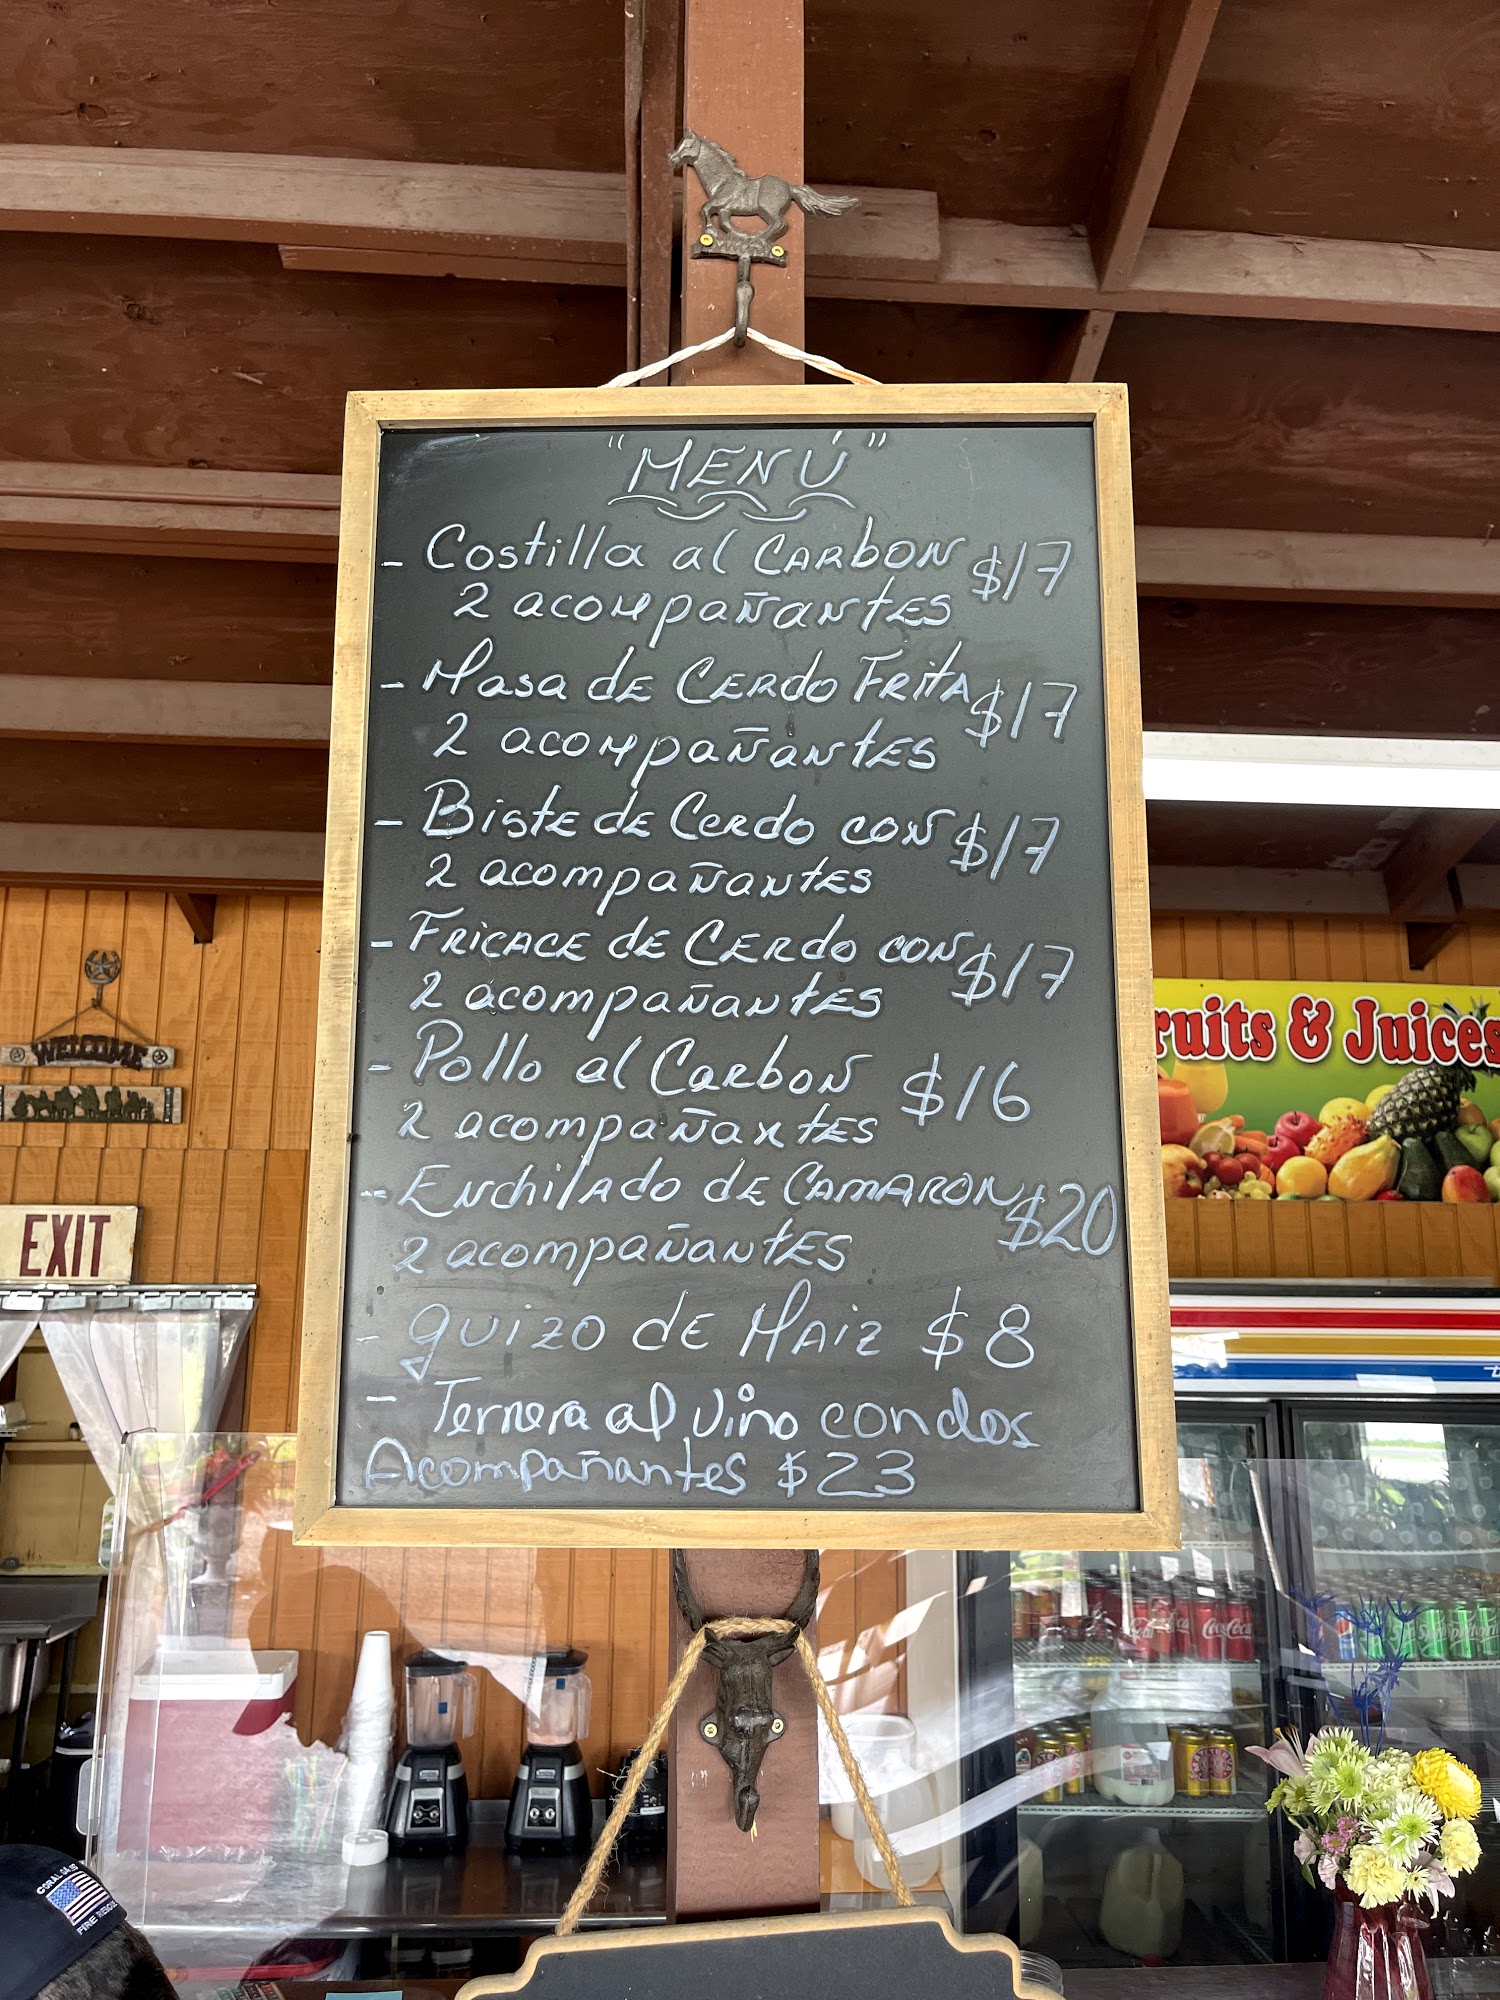 "MENÚ"
- Costilla al CARbON $17
2 acompañantes
- Masa de CERdO FRitA $17
2 acompañantes
- Biste de Cerdo con $17
2 acompañantes
- FRICACE de CERdo con $17
2 acompañantes
- Pollo al Carbon $16
2 acompañantes
- Enchilado de CAMARON $20
2 acompañantes
- guizo de Maiz $8
- Ternera al vino con dos
Acompañantes $23
WELCOME
ruits & Juices
EXIT
Coca-Cola
CORAL GABLES
FIRE RESCUE